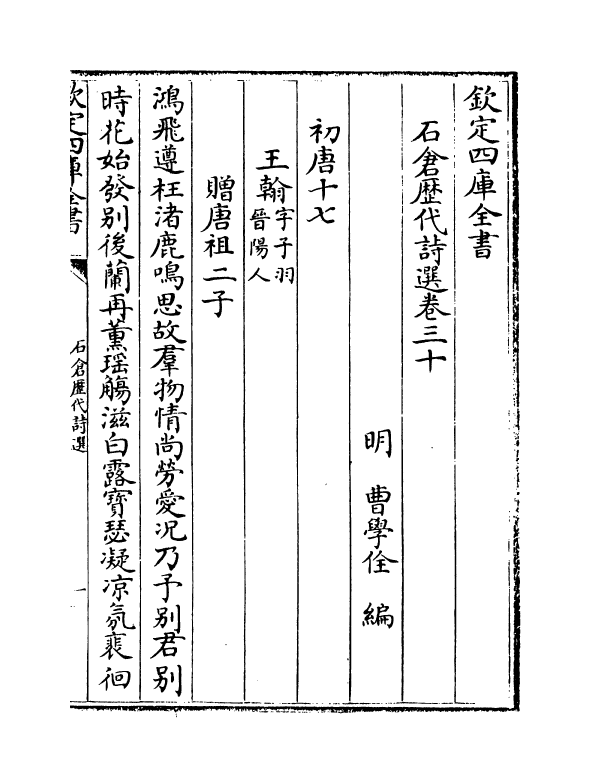 欽定四庫全書
石倉歷代詩選卷三十
明 曹學佺 編
初唐十七
王翰字子羽
晉陽人
贈唐祖二子
鴻飛遵枉渚鹿鳴思故羣物情尚勞愛況乃予別君別
時花始發別後蘭再薰瑶觴滋白露寳瑟凝凉氛裵徊
欽定四庫全書
石倉歷代詩選
一